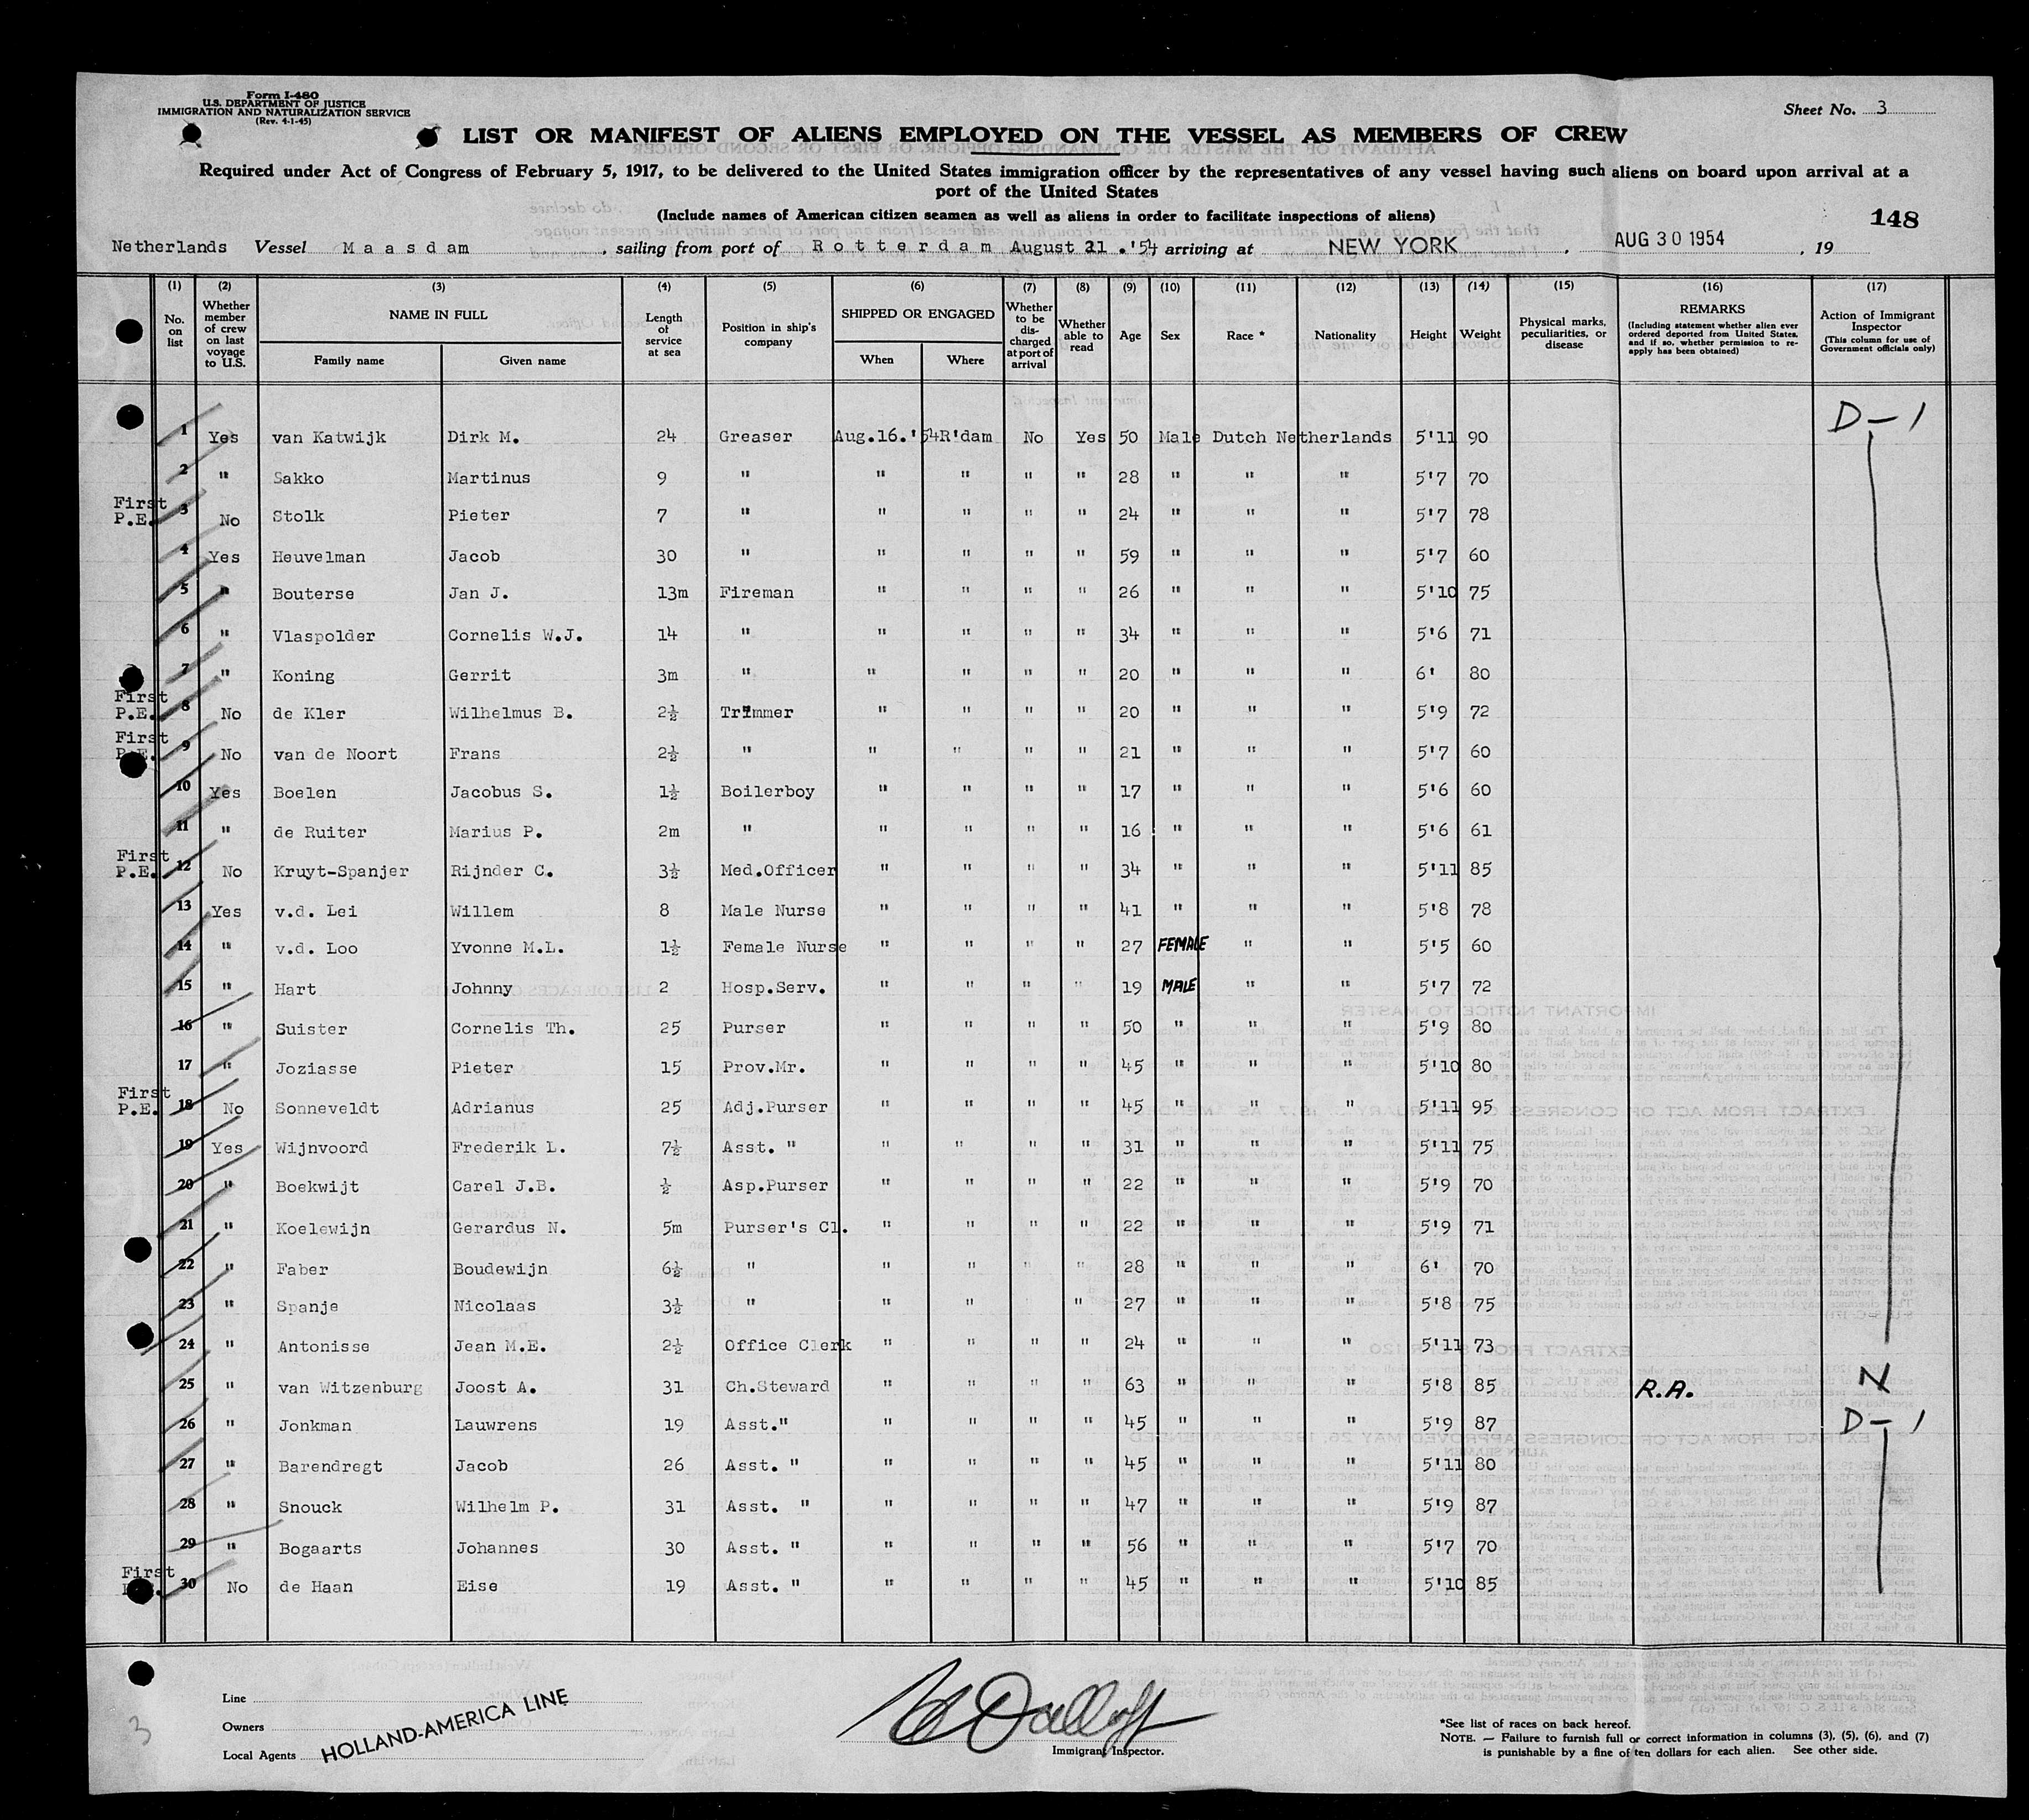 Form I-480
U.S. DEPARTMENT OF JUSTICE
IMMIGRATION AND NATURALIZATION SERVICE
(Rev. 4-1-45)
Sheet No. 3
LIST OR MANIFEST OF ALIENS EMPLOYED ON THE VESSEL AS MEMBERS OF CREW
Required under Act of Congress of February 5, 1917, to be delivered to the United States immigration officer by the representatives of any vessel having such aliens on board upon arrival at a
port of the United States
(Include names of American citizen seamen as well as aliens in order to facilitate inspections of aliens)
148
Netherlands Vessel Maasdam, sailing from port of Rotterdam August 21.'54 arriving at NEW YORK, AUG 30 1954, 19
(1) (2) (3) (4) (5) (6) (7) (8) (9) (10) (11) (12) (13) (14) (15) (16) (17)
No. on list
Whether member of crew on last voyage to U.S.
NAME IN FULL
Family name Given name
Length of service at sea
Position in ship's company
SHIPPED OR ENGAGED
When Where
Whether to be discharged at port of arrival
Whether able to read
Age
Sex
Race *
Nationality
Height
Weight
Physical marks, peculiarities, or disease
REMARKS
(Including statement whether alien ever ordered deported from United States, and if so, whether permission to re-apply has been obtained)
Action of Immigrant Inspector
(This column for use of Government officials only)
1 Yes van Katwijk Dirk M. 24 Greaser Aug.16.'54 R'dam No Yes 50 Male Dutch Netherlands 5'11 90 D-1
2 " Sakko Martinus 9 " " " " " 28 " " " 5'7 70
First P.E. 3 No Stolk Pieter 7 " " " " " 24 " " " 5'7 78
4 Yes Heuvelman Jacob 30 " " " " " 59 " " " 5'7 60
5 " Bouterse Jan J. 13m Fireman " " " " 26 " " " 5'10 75
6 " Vlaspolder Cornelis W.J. 14 " " " " " 34 " " " 5'6 71
7 " Koning Gerrit 3m " " " " " 20 " " " 6' 80
First P.E. 8 No de Kler Wilhelmus B. 2½ Trimmer " " " " 20 " " " 5'9 72
First P.E. 9 No van de Noort Frans 2½ " " " " " 21 " " " 5'7 60
10 Yes Boelen Jacobus S. 1½ Boilerboy " " " " 17 " " " 5'6 60
11 " de Ruiter Marius P. 2m " " " " " 16 " " " 5'6 61
First P.E. 12 No Kruyt-Spanjer Rijnder C. 3½ Med.Officer " " " " 34 " " " 5'11 85
13 Yes v.d. Lei Willem 8 Male Nurse " " " " 41 " " " 5'8 78
14 " v.d. Loo Yvonne M.L. 1½ Female Nurse " " " " 27 FEMALE " " 5'5 60
15 " Hart Johnny 2 Hosp.Serv. " " " " 19 MALE " " 5'7 72
16 " Suister Cornelis Th. 25 Purser " " " " 50 " " " 5'9 80
17 " Joziasse Pieter 15 Prov.Mr. " " " " 45 " " " 5'10 80
First P.E. 18 No Sonneveldt Adrianus 25 Adj.Purser " " " " 45 " " " 5'11 95
19 Yes Wijnvoord Frederik L. 7½ Asst. " " " " " 31 " " " 5'11 75
20 " Boekwijt Carel J.B. ½ Asp.Purser " " " " 22 " " " 5'9 70
21 " Koelewijn Gerardus N. 5m Purser's Cl. " " " " 22 " " " 5'9 71
22 " Faber Boudewijn 6½ " " " " " 28 " " " 6' 70
23 " Spanje Nicolaas 3½ " " " " " 27 " " " 5'8 75
24 " Antonisse Jean M.E. 2½ Office Clerk " " " " 24 " " " 5'11 73
25 " van Witzenburg Joost A. 31 Ch.Steward " " " " 63 " " " 5'8 85 R.A. N
26 " Jonkman Lauwrens 19 Asst." " " " " 45 " " " 5'9 87 D-1
27 " Barendregt Jacob 26 Asst. " " " " " 45 " " " 5'11 80
28 " Snouck Wilhelm P. 31 Asst. " " " " " 47 " " " 5'9 87
29 " Bogaarts Johannes 30 Asst. " " " " " 56 " " " 5'7 70
First 30 No de Haan Eise 19 Asst. " " " " " 45 " " " 5'10 85
Line
Owners
Local Agents HOLLAND-AMERICA LINE
Immigrant Inspector.
*See list of races on back hereof.
NOTE. — Failure to furnish full or correct information in columns (3), (5), (6), and (7)
is punishable by a fine of ten dollars for each alien. See other side.
3